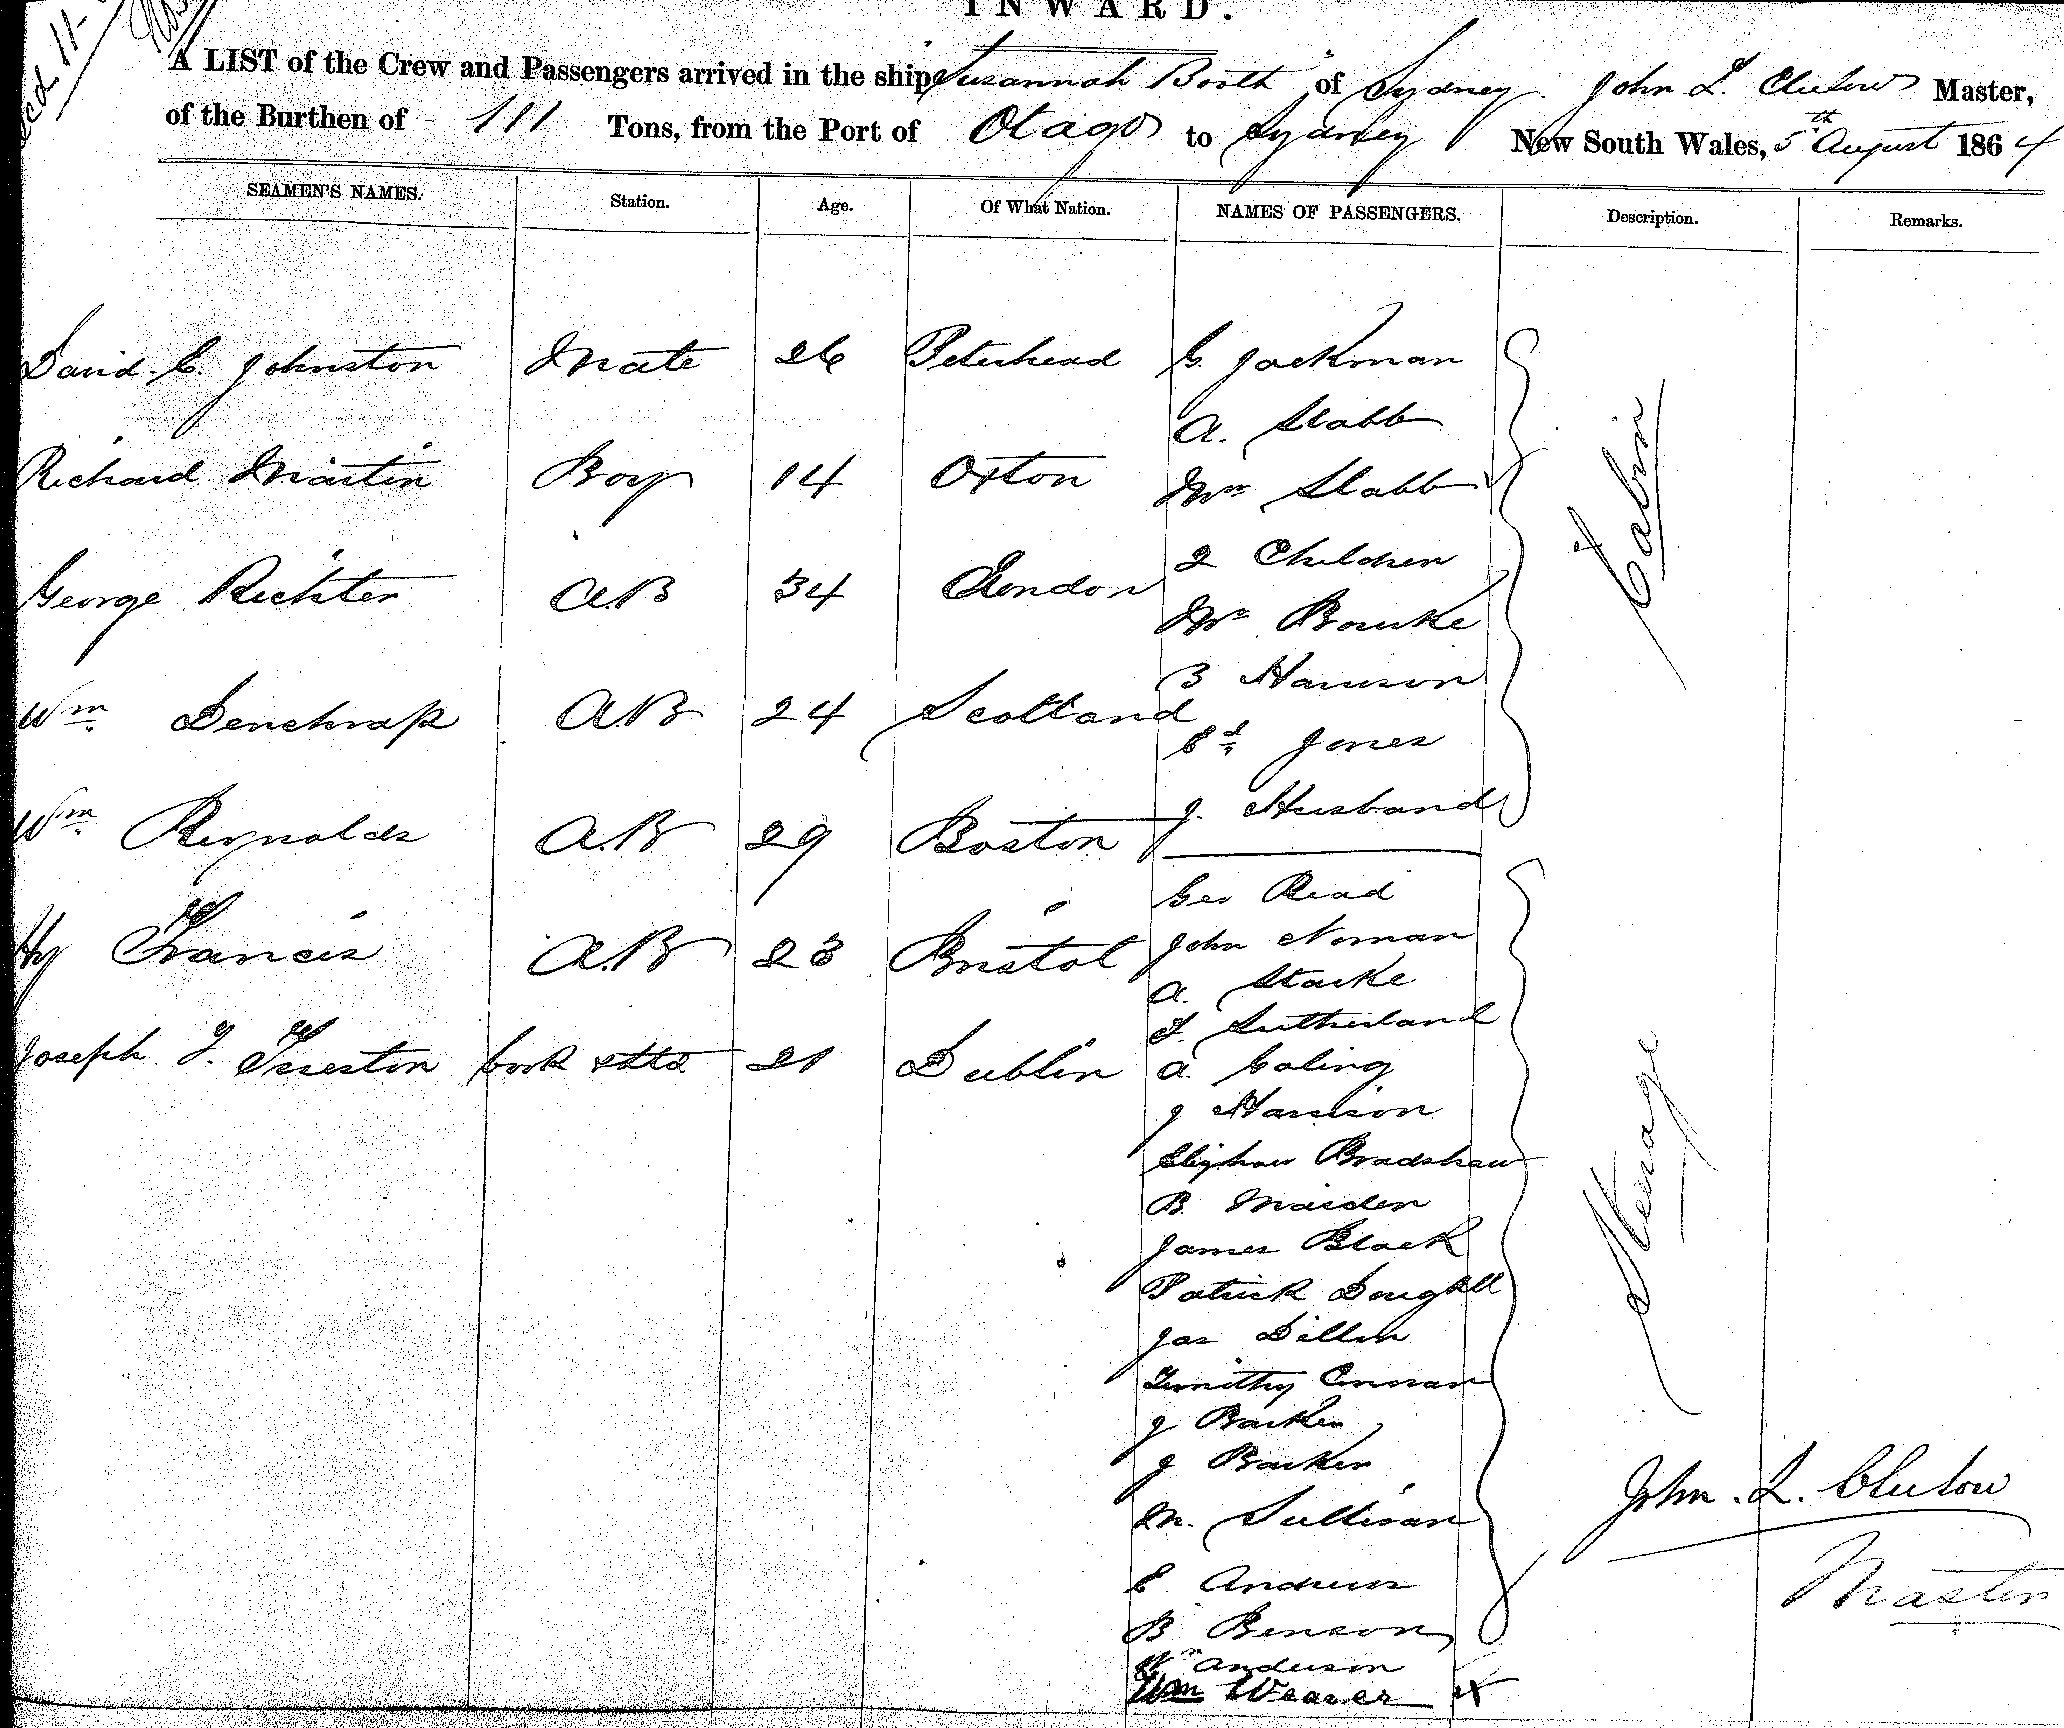 INWARD.
A LIST of the Crew and Passengers arrived in the ship Susannah Booth of Sydney John L. Clulow Master,
of the Burthen of 111 Tons, from the Port of Otago to Sydney New South Wales, 5th August 1864
SEAMEN'S NAMES. Station. Age. Of What Nation. NAMES OF PASSENGERS. Description. Remarks.
David C. Johnston Mate 26 Peterhead G. Jackman
A. Slabb
Richard Martin Boy 14 Oxton Mrs Slabb
2 Children
George Richter AB 34 London
Mr Bourke
B Harrison
Wm AB 24 Scotland
Cd Jones
J. Husband
Wm Reynolds AB 29 Boston
Cabin
Geo Read
Hy Francis AB 23 Bristol John Norman
A. Starke
Sutherland
Joseph Dublin A Coling
J Harrison
Bradshaw
B Maiden
James Black
Patrick Dougall
Jas Dillon
Timothy
J Barker
J Barker
M. Sullivan
Steerage
John. L. Clulow
Master
E Andrews
B Benson
Wm Anderson
Wm Weaver